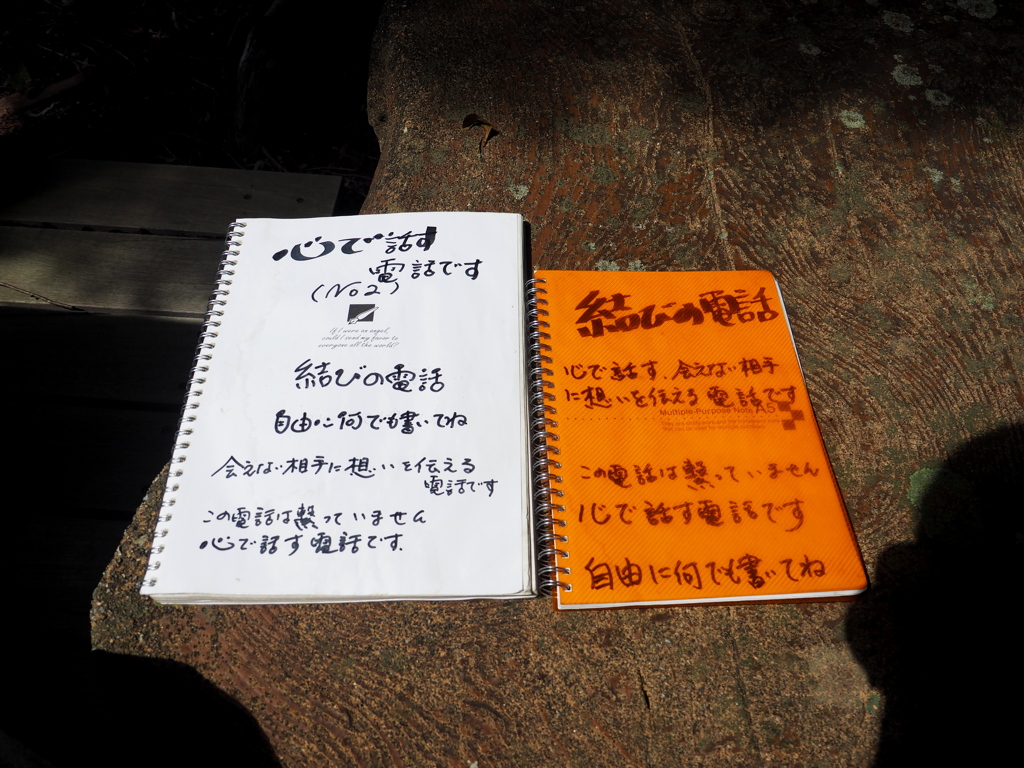 心で話す
電話です
(No2)
If I were an angel,
could I send my favor to
everyone all the world?
結びの電話
自由に何でも書いてね
会えない相手に想いを伝える
電話です
この電話は繋っていません
心で話す電話です.
結びの電話
心で話す、会えない相手
に想いを伝える電話です
Multiple-Purpose Note A5
この電話は繋っていません
心で話す電話です
自由に何でも書いてね